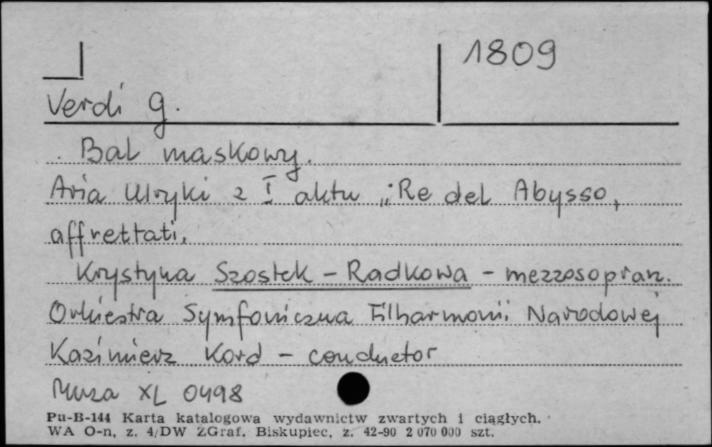 1809
Verdi G.
Bal maskowy.
Aria Ulryki z I aktu „Re del Abysso,
affrettati.
Krystyna Szostek - Radkowa - mezzosopran.
Orkiestra Symfoniczna Filharmonii Narodowej
Kazimierz Kord - conductor
Muza XL 0498
Pu-B-144 Karta katalogowa wydawnictw zwartych i ciągłych.
WA O-n, z. 4/DW ZGraf. Biskupiec, z. 42-90 2 070 000 szt.